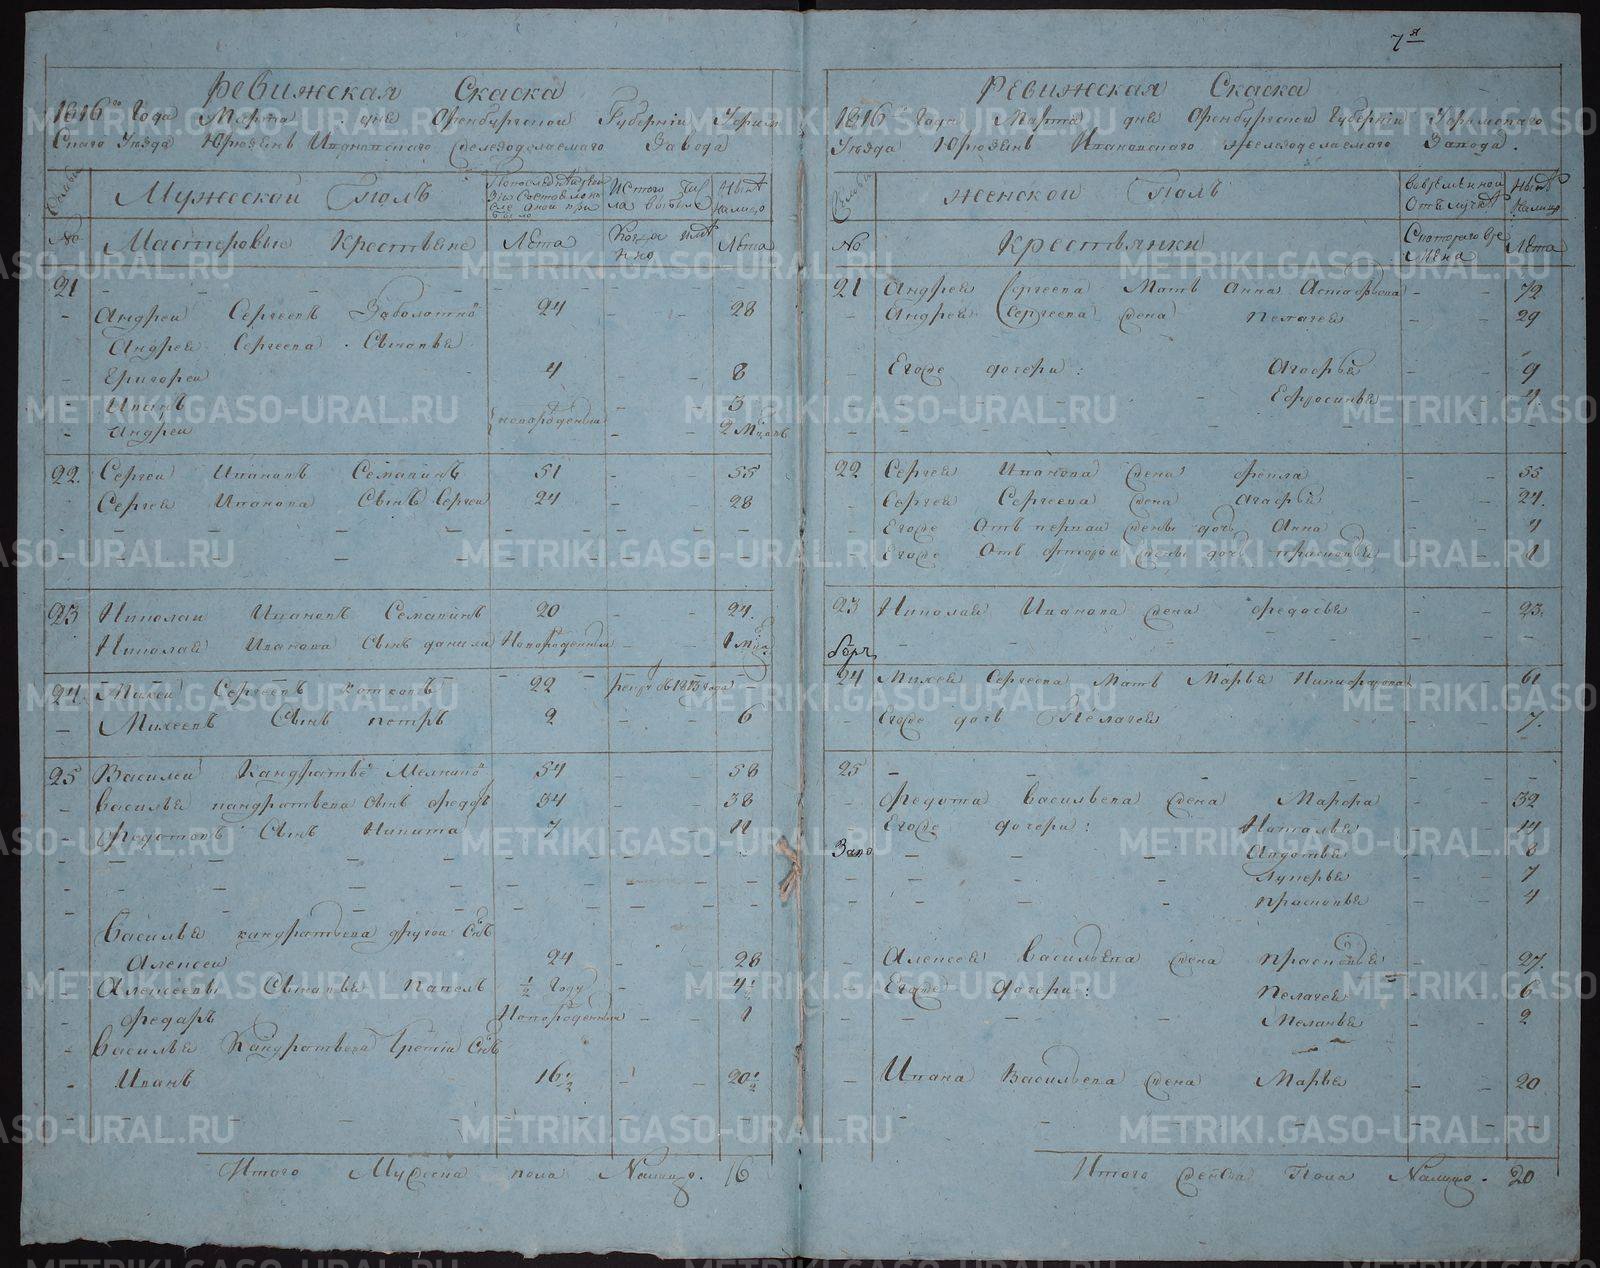 7я
Ревижская Скаска
1816го Года Марта дня Оренбургской Губернии Уфим
Скаго Уезда Юрюзень Ивановскаго железоделаемаго Завода
Семьи
Мужеской Полъ
Ныне налицо
№
Мастеровые Крестьяне
Лета
Когда имянно
Лета
21
Андреи Сергеевъ Заболотно 24 - - 28
Андрея Сергеева Сыновья
Григореи 4 - - 8
Иванъ - - 3
новорожденыи
Андреи - - 2 Мцовъ
22. Сергеи Ивановъ Семавинъ 51 - - 55
Сергея Иванова Сынъ Сергеи 24 - - 28
23 Николаи Ивановъ Семавинъ 20 - - 24.
Николая Иванова Сынъ данила Новорожденыи - - 1 Мца
24. Михеи Сергеевъ Котковъ 22 1813 года
Михеевъ Сынъ петръ 2 - - 6
25 Василеи Кандратье Мелкино 54 - - 58
Василья кандратьева сынъ федотъ 34 - - 38
Федотовъ Сынъ Никита 7 - - 11
Василья кандратьева другои Сынъ
Алексеи 24 - - 28
Алексеевы Сыновья Павелъ ½ Году - 4½
Федаръ Новорожденыи - - 1
Василья Кандратьева Третiи Сынъ
Иванъ 16½ - - 20½
Итого Мужеска пола Налицо. 16
Ревижская Скаска
1816 Года Марта дня Оренбургской Губернии Уфимскаго
Уезда Юрюзень Ивановскаго железоделаемаго Завода.
Семьи
Женской Полъ
Во временной отлучке
Ныне налицо
№
Крестьянки
Скотораго времена
Лета
21 Андрея Сергеева Мать Анна Астафьева - - 72
Андрея Сергеева жена Пелагея - - 29
Егоже дочери: Агафья - - 9
Ефросинья - - 4.
22 Сергея Иванова жена фекла - - 55
Сергея Сергеева жена Агафья - - 24.
Егоже Отъ первой жены дочь Анна - - 4
Егоже Отъ фторой жены дочь прасковья - - 1
23 Николая Иванова жена федосья - - 23.
24 Михея Сергеева Мать Марья Никифарова - - 61
Егоже дочь Пелагея - - 7.
25
Федота Васильева жена Марфа - - 32
Егоже дочери: Наталья - - 14
Авдотья - - 8
Лукерья - - 7
прасковья - - 4
Алексея Васильева жена прасковья - - 27.
Егоже дочери: Пелагея - - 6
Меланья - - 2
Ивана Васильева жена Марья - - 20
Итого Женска Пола Налицо. 20
METRIKI.GASO-URAL.RU